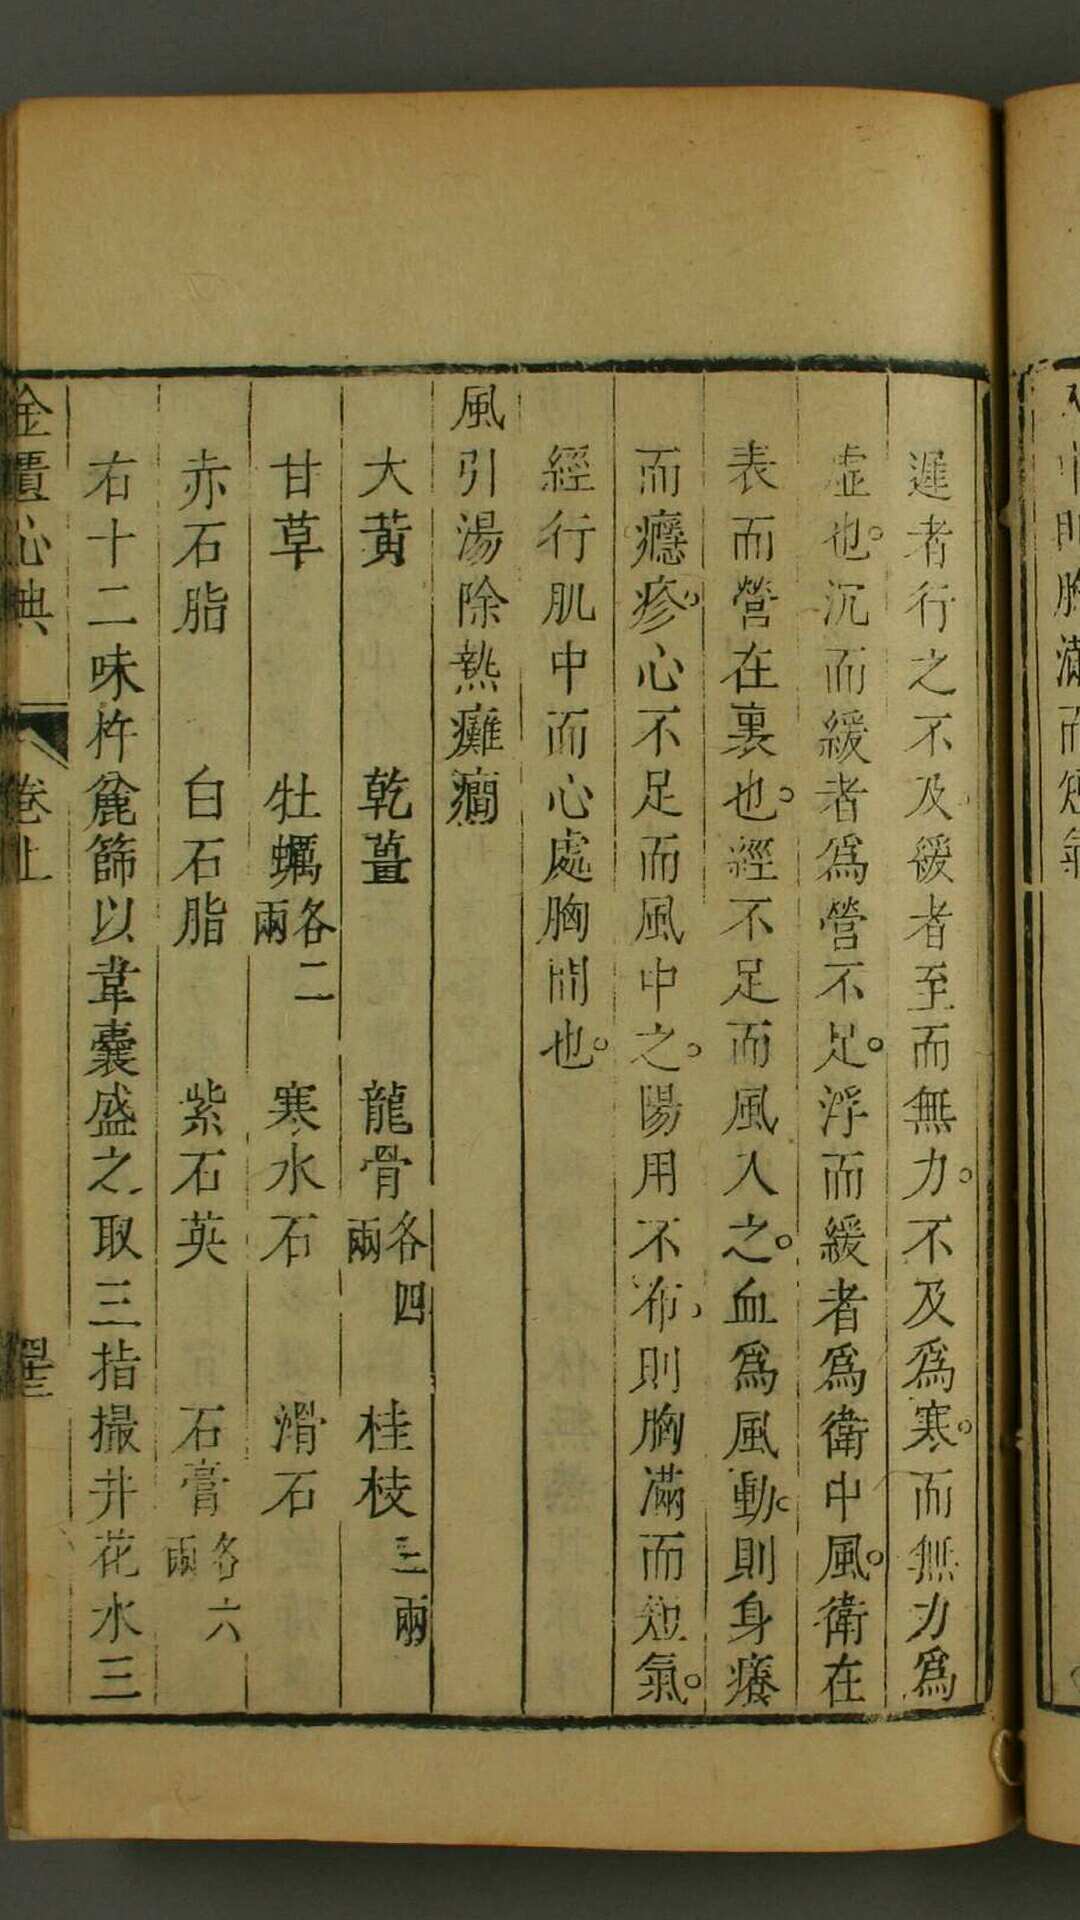 心中時胸滿而短氣
遲者行之不及緩者至而無力。不及爲寒。而無力爲
虛也。沉而緩者爲營不足。浮而緩者爲衛中風。衛在
表而營在裏也。經不足而風入之。血爲風動。則身癢
而癮疹。心不足而風中之。陽用不布。則胸滿而短氣。
經行肌中而心處胸間也。
風引湯除熱癱癇
大黃　乾薑　龍骨各四兩　桂枝三兩
甘草　牡蠣各二兩　寒水石　滑石
赤石脂　白石脂　紫石英　石膏各六兩
右十二味杵麄篩以韋囊盛之取三指撮井花水三
金匱心典　卷上